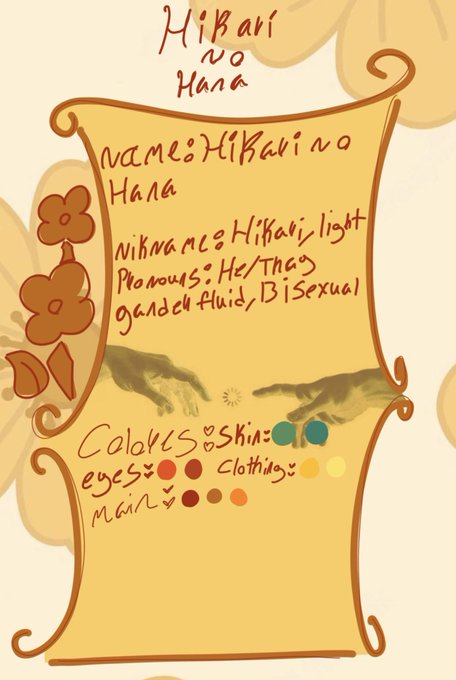 Hikari
no
Hana
name:Hikari no
Hana
nikname:Hikari, light
Pronouns: He/Thay
gander fluid, Bisexual
Colores:skin:
eyes: clothing:
Hair: